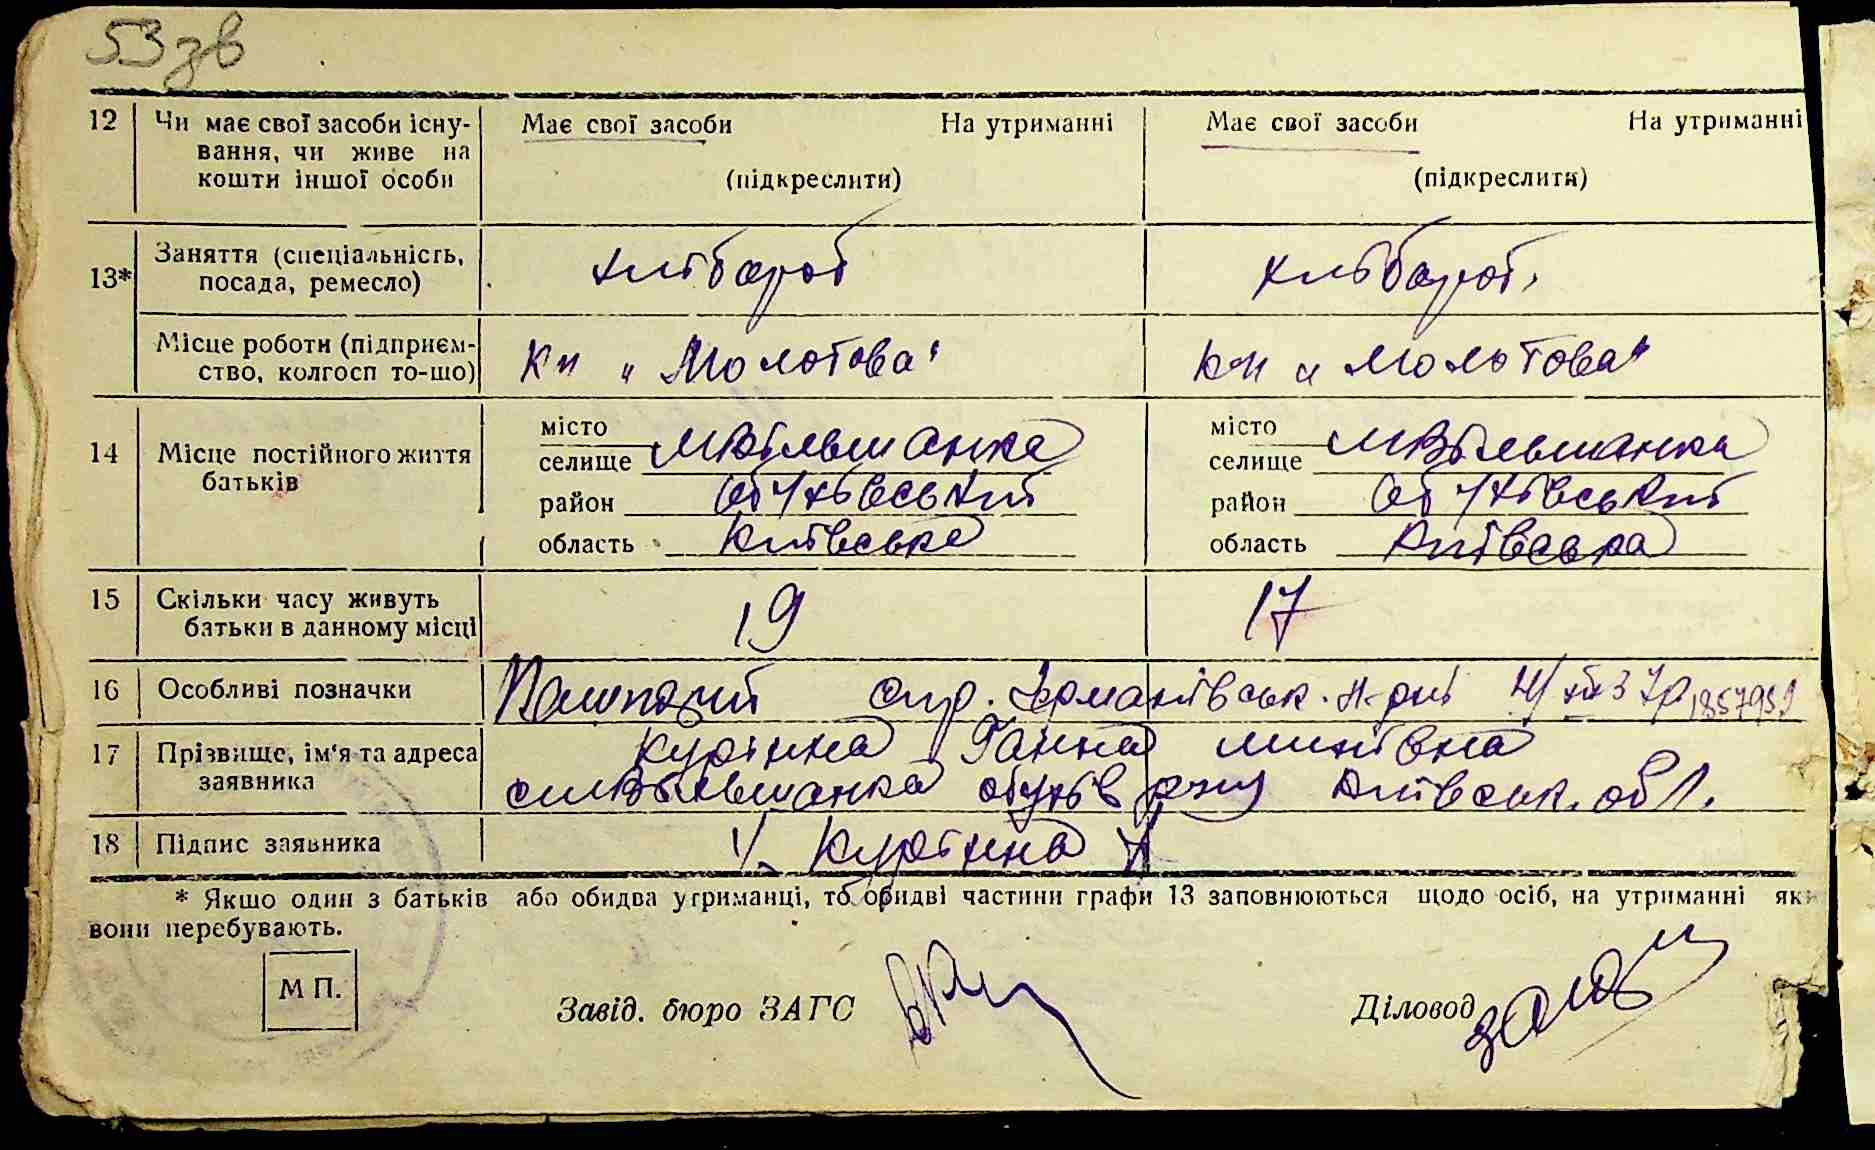 53 зв
12 Чи має свої засоби існу- Має свої засоби На утриманні Має свої засоби На утриманні
вання, чи живе на
кошти іншої особи (підкреслити) (підкреслити)
13* Заняття (спеціальність, хлібороб хлібороб
посада, ремесло)
Місце роботи (підприєм- кп „Молотова" кп „Молотова"
ство, колгосп то-що)
14 Місце постійного життя батьків
місто місто
селище Мвільшанка селище Мвільшанка
район Обухівський район Обухівський
область Київська область Київська
15 Скільки часу живуть 19 17
батьки в данному місці
16 Особливі позначки спр. Германівськ. 37р
17 Прізвище, ім'я та адреса Курінна Ганна
заявника смВільшанка обухів Київськ. обл.
18 Підпис заявника Курінна
* Якщо один з батьків або обидва утриманці, то обидві частини графи 13 заповнюються щодо осіб, на утриманні які
вони перебувають.
М П.
Завід. бюро ЗАГС Діловод